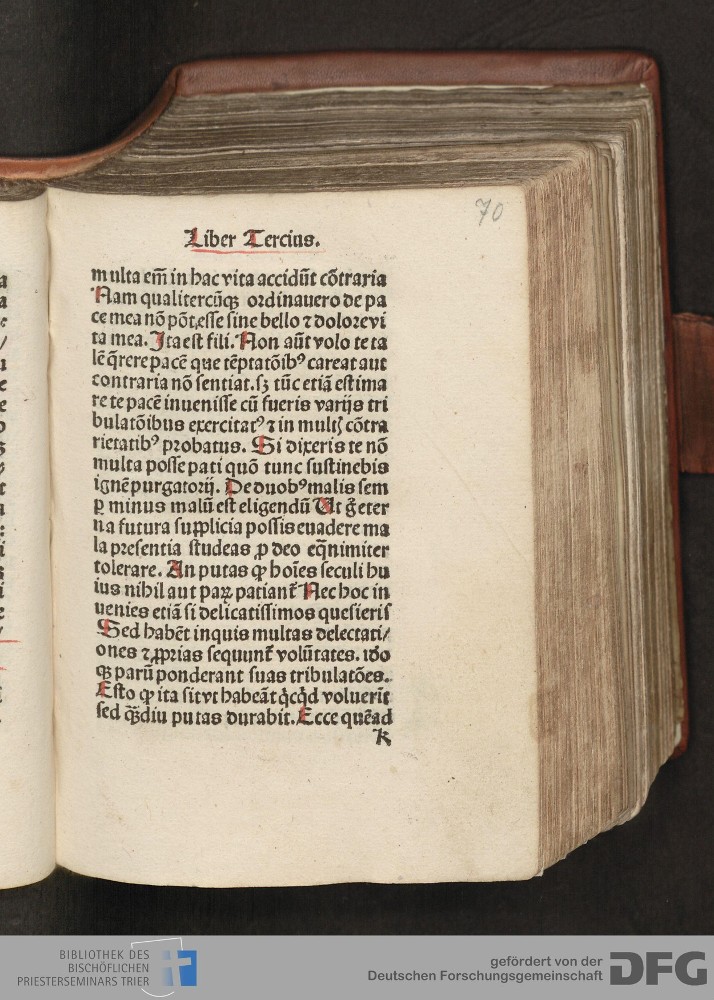 70
Liber Tercius.
multa em̄ in hac vita accidūt cōtraria
Nam qualitercūqꝫ ordinauero de pa
ce mea nō pōt esse sine bello ⁊ dolore vi
ta mea. Ita est fili. Non aūt volo te ta
lē q̄rere pacē que tēptatōibꝰ careat aut
contraria nō sentiat. sꝫ tūc etiā estima
re te pacē inuenisse cū fueris varijs tri
bulatōibus exercitatꝰ ⁊ in multꝭ cōtra
rietatibꝰ probatus. Si dixeris te nō
multa posse pati quō tunc sustinebis
ignē purgatorij. De duobꝰ malis sem
ꝑ minus malū est eligendū Ut ḡ eter
na futura supplicia possis euadere ma
la presentia studeas ꝓ deo eq̄nimiter
tolerare. An putas ꝙ hoīes seculi hu
ius nihil aut paꝝ patiant᷑ Nec hoc in
uenies etiā si delicatissimos quesieris
Sed habēt inquis multas delectati/
ones ⁊ ꝓprias sequunt᷑ volūtates. ido
qꝫ parū ponderant suas tribulatōes.
Esto ꝙ ita sit vt habeāt q̇cq̇d voluerīt
sed qꝫ̄diu putas durabit. Ecce quēad
k
BIBLIOTHEK DES
BISCHÖFLICHEN
PRIESTERSEMINARS TRIER
gefördert von der
Deutschen Forschungsgemeinschaft
DFG